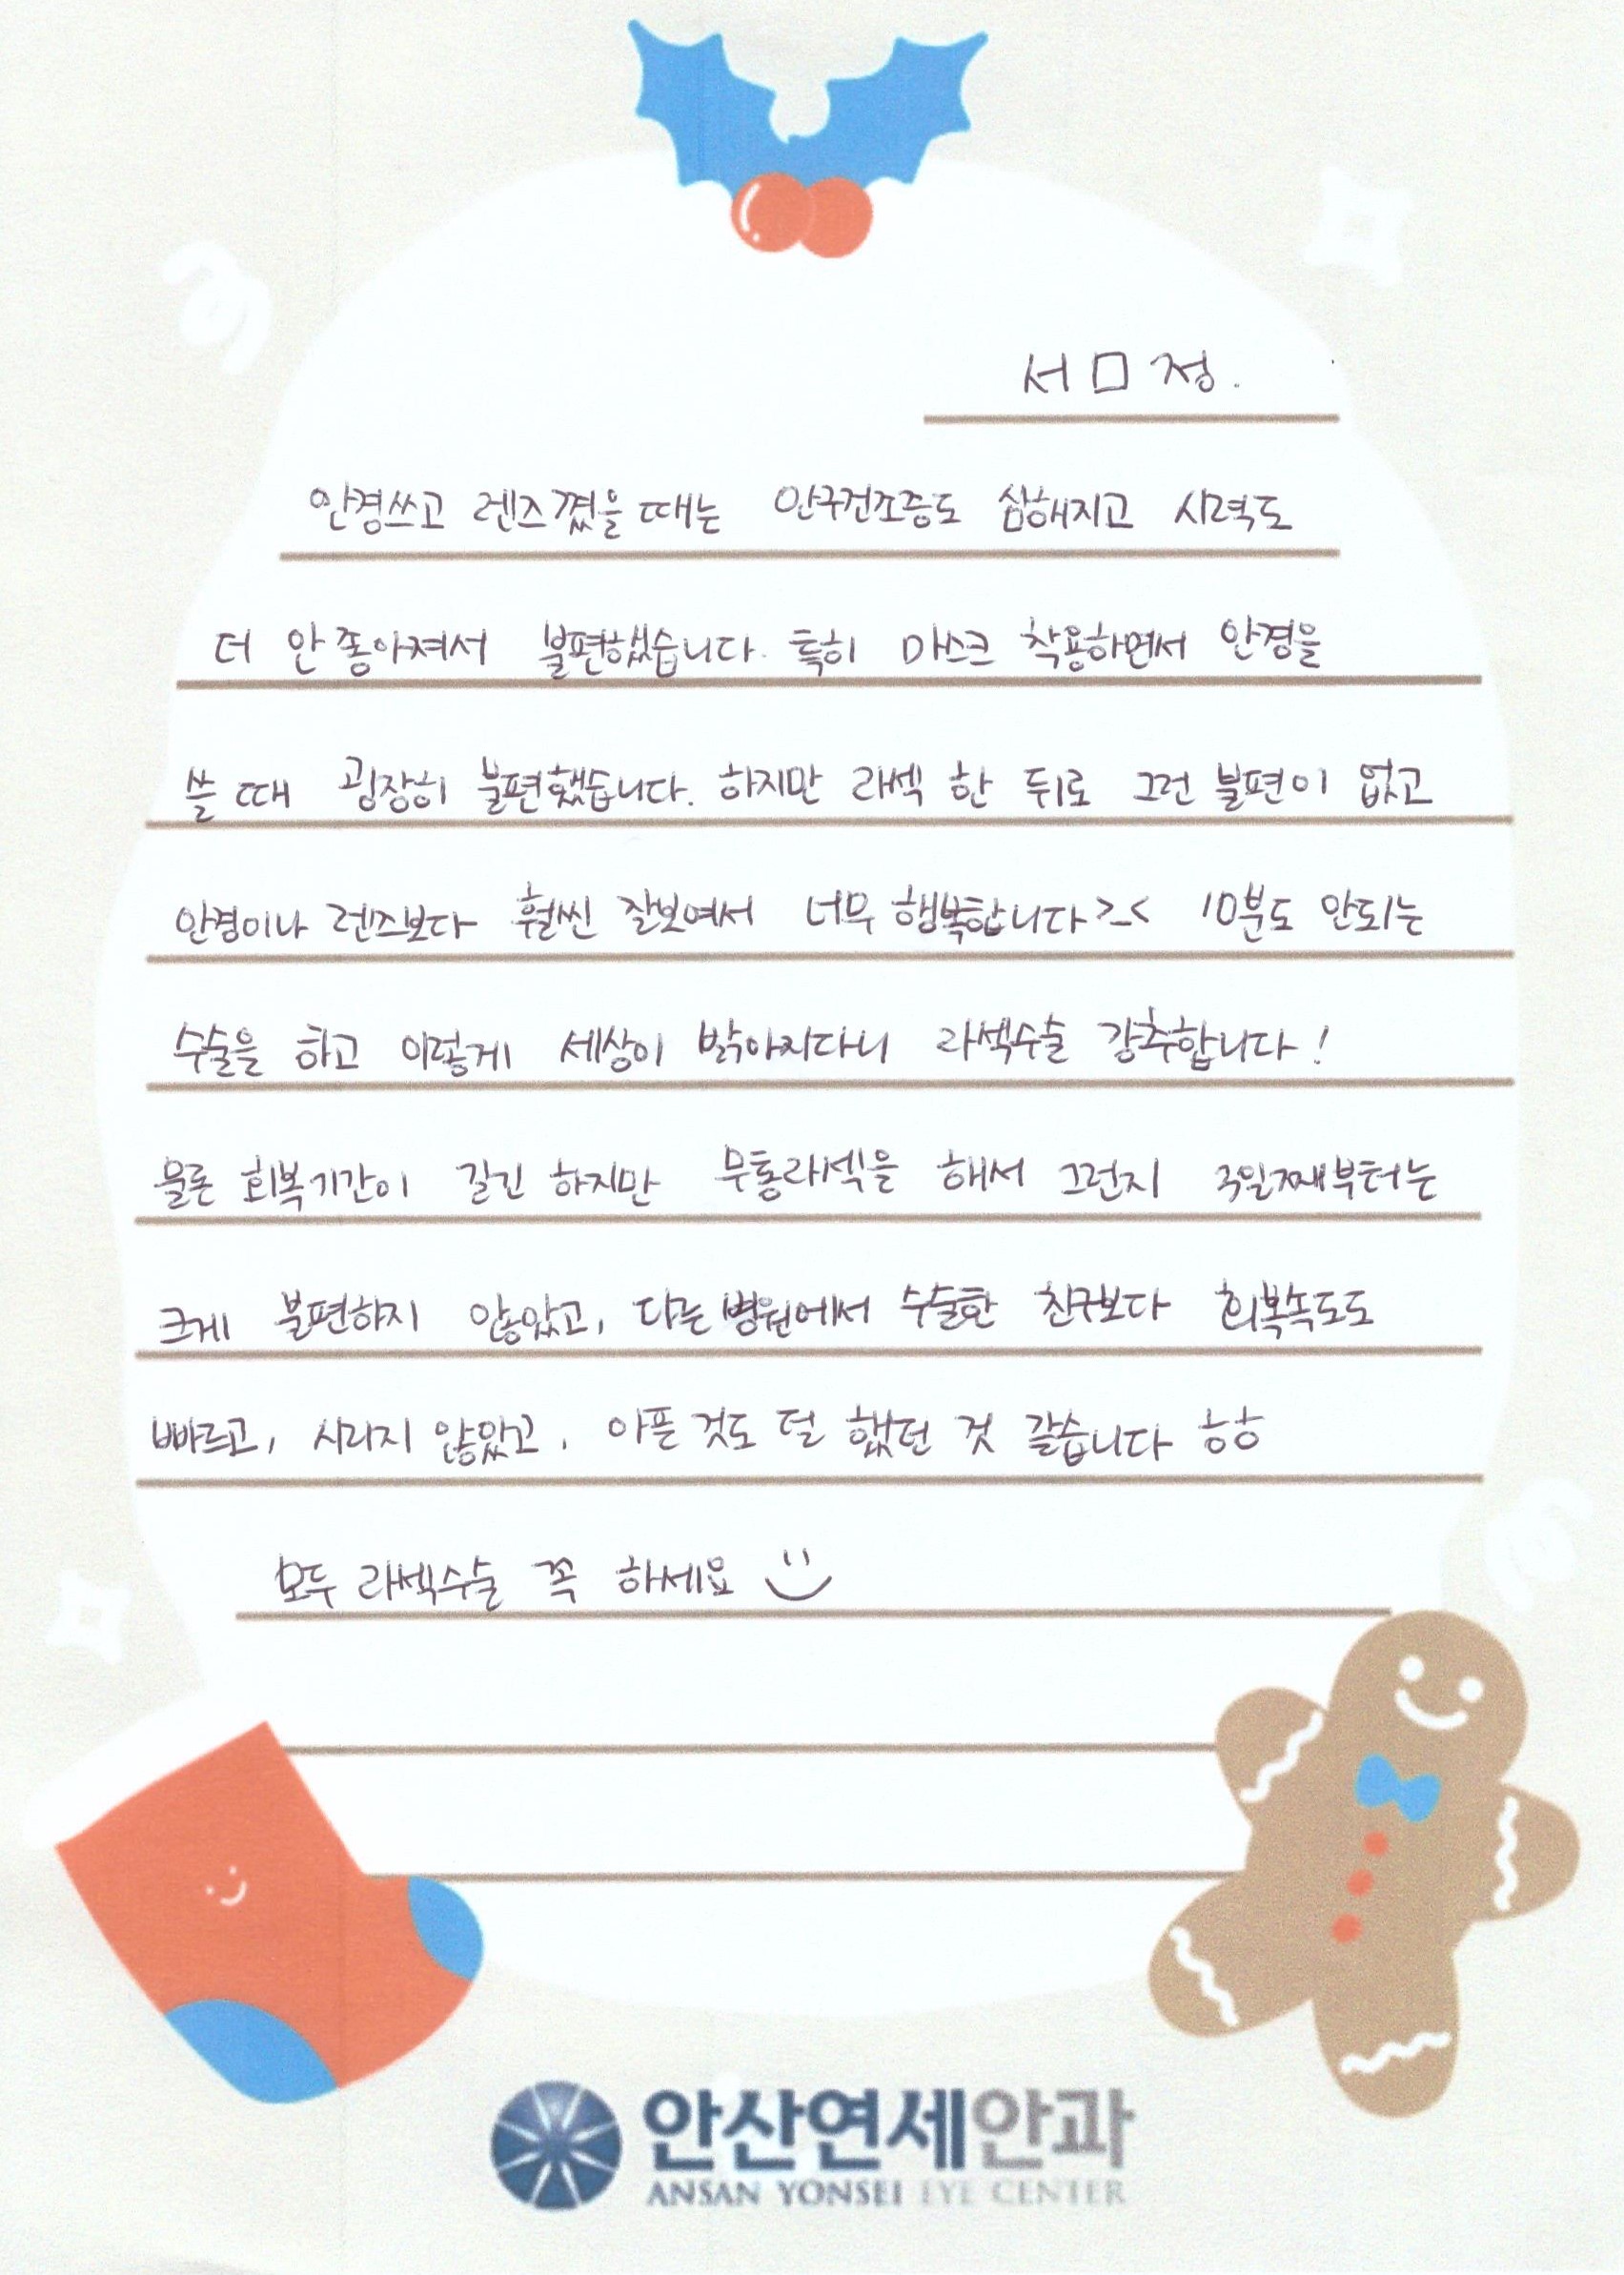 서 □ 정.
안경쓰고 렌즈꼈을 때는 안구건조증도 심해지고 시력도
더 안 좋아져서 불편했습니다. 특히 마스크 착용하면서 안경을
쓸 때 굉장히 불편했습니다. 하지만 라섹 한 뒤로 그런 불편이 없고
안경이나 렌즈보다 훨씬 잘보여서 너무 행복합니다 >_< 10분도 안되는
수술을 하고 이렇게 세상이 밝아지다니 라섹수술 강추합니다!
물론 회복기간이 길긴 하지만 무통라섹을 해서 그런지 3일째부터는
크게 불편하지 않았고, 다른 병원에서 수술한 친구보다 회복속도도
빠르고, 시리지 않았고, 아픈 것도 덜 했던 것 같습니다 ㅎㅎ
모두 라섹수술 꼭 하세요
안산연세안과
ANSAN YONSEI EYE CENTER